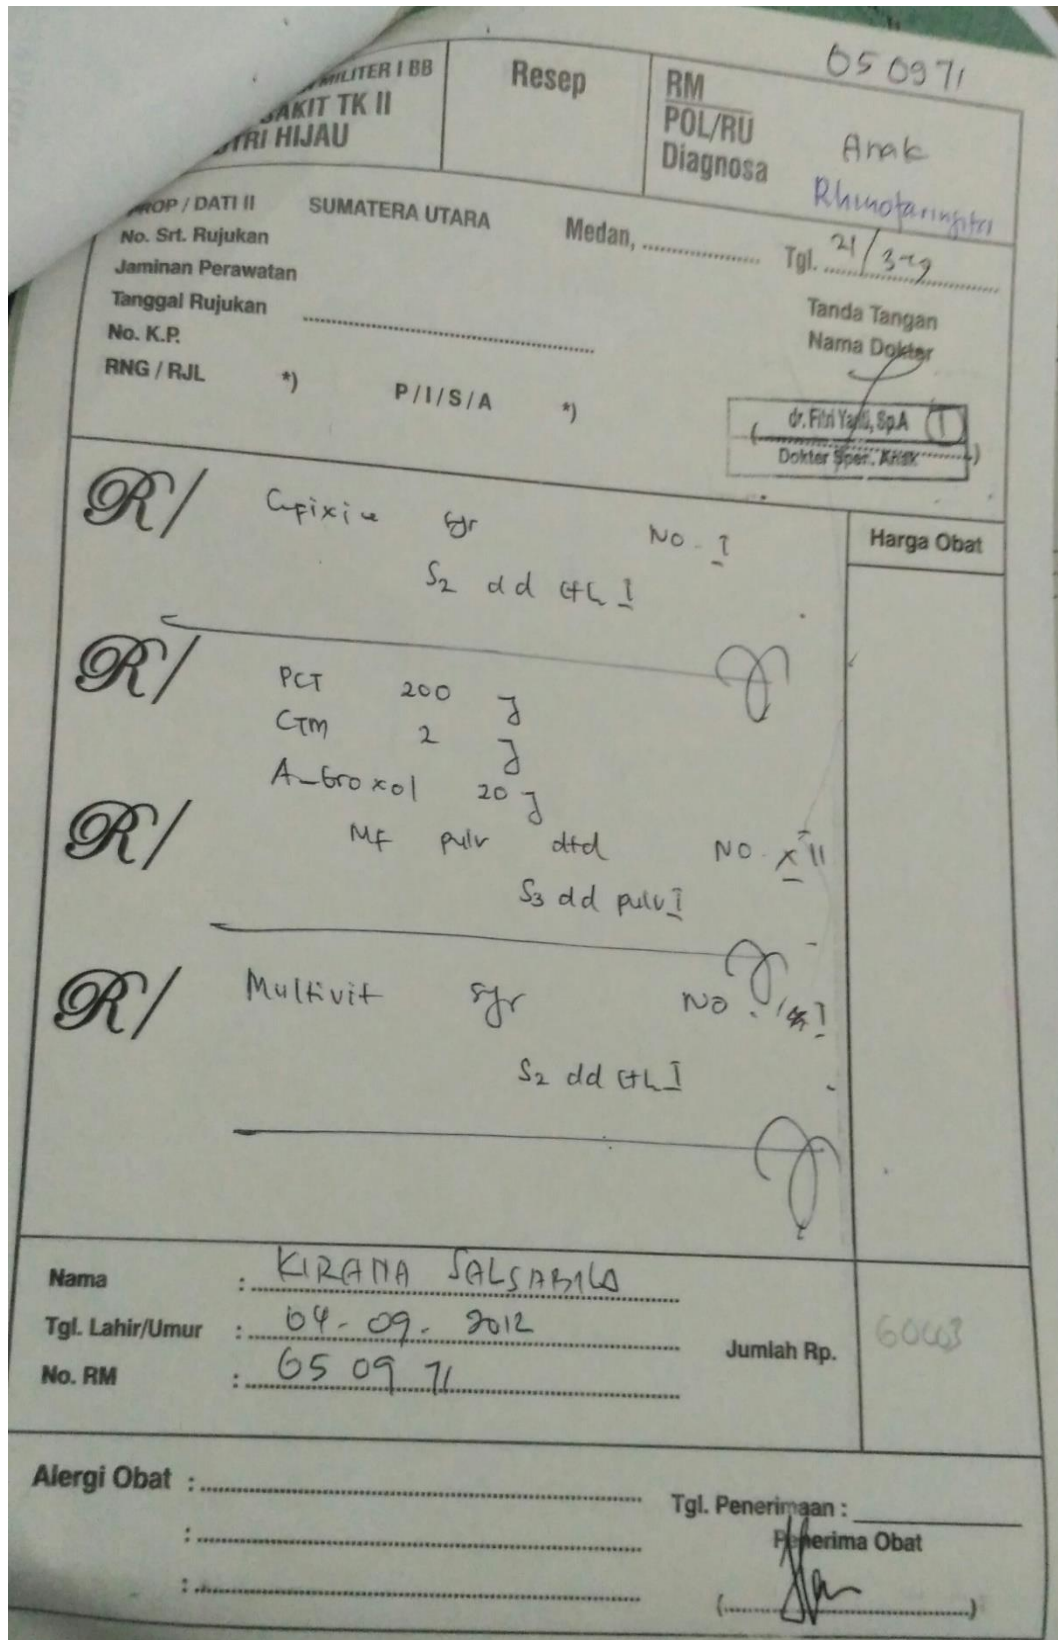 050971
MILITER I BB
SAKIT TK II
TRI HIJAU
Resep
RM
POL/RU
Diagnosa
Anak
Rhinofaringitri
PROP / DATI II SUMATERA UTARA
Medan, Tgl. 21/3-19
No. Srt. Rujukan
Jaminan Perawatan
Tanggal Rujukan
No. K.P.
RNG / RJL *) P / I / S / A *)
Tanda Tangan
Nama Dokter
dr. Fitri Yanti, Sp.A
Dokter Spes. Anak
Harga Obat
R/ Cefixime syr No. I
S2 dd cth I
R/ PCT 200 g
CTM 2 g
Ambroxol 20 g
R/ MF pulv dtd No. XII
S3 dd pulv I
R/ Multivit syr No. I
S2 dd cth I
Nama : KIRANA SALSABILA
Tgl. Lahir/Umur : 04-09-2012
No. RM : 05 09 71
Jumlah Rp.
Alergi Obat :
Tgl. Penerimaan :
Penerima Obat